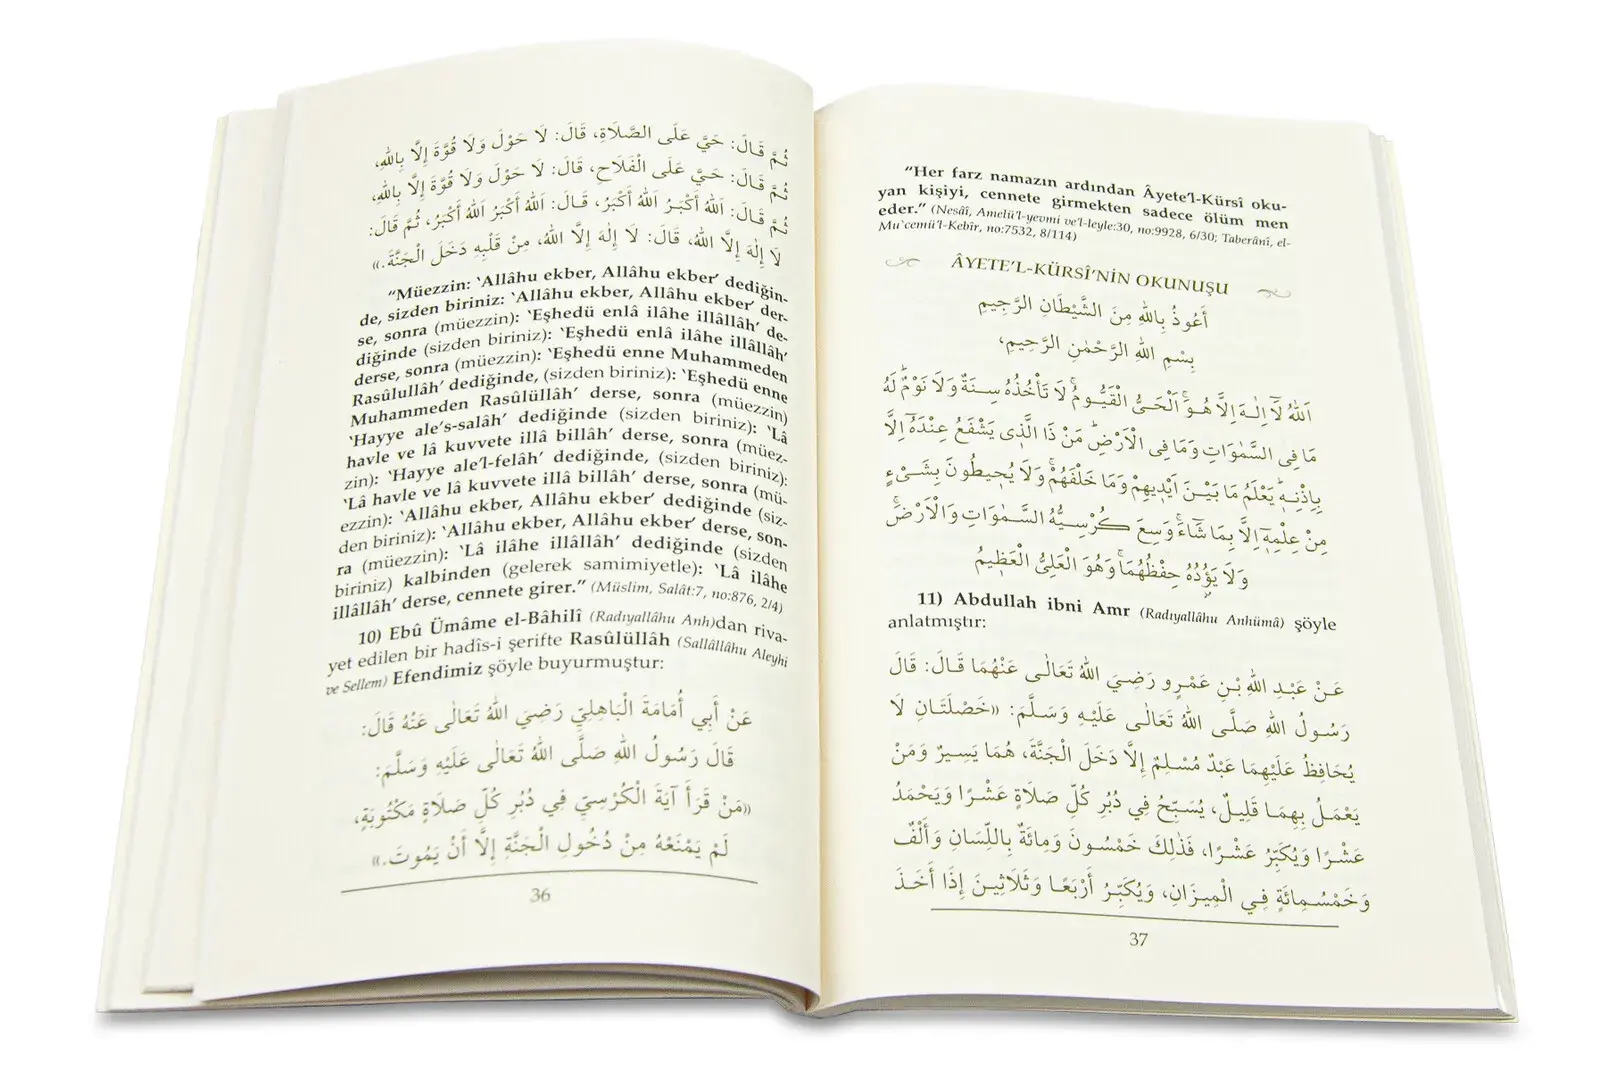 ثُمَّ قَالَ: حَيَّ عَلَى الصَّلَاةِ، قَالَ: لَا حَوْلَ وَلَا قُوَّةَ إِلَّا بِاللهِ،
ثُمَّ قَالَ: حَيَّ عَلَى الْفَلَاحِ، قَالَ: لَا حَوْلَ وَلَا قُوَّةَ إِلَّا بِاللهِ،
ثُمَّ قَالَ: اَللهُ أَكْبَرُ اَللهُ أَكْبَرُ، قَالَ: اَللهُ أَكْبَرُ اَللهُ أَكْبَرُ، ثُمَّ قَالَ:
لَا إِلٰهَ إِلَّا اللهُ، قَالَ: لَا إِلٰهَ إِلَّا اللهُ، مِنْ قَلْبِهِ دَخَلَ الْجَنَّةَ.»
“Müezzin: ‘Allâhu ekber, Allâhu ekber’ dediğin-
de, sizden biriniz: ‘Allâhu ekber, Allâhu ekber’ der-
se, sonra (müezzin): ‘Eşhedü enlâ ilâhe illâllâh’ de-
diğinde (sizden biriniz): ‘Eşhedü enlâ ilâhe illâllâh’
derse, sonra (müezzin): ‘Eşhedü enne Muhammeden
Rasûlullâh’ dediğinde, (sizden biriniz): ‘Eşhedü enne
Muhammeden Rasûlüllâh’ derse, sonra (müezzin)
‘Hayye ale’s-salâh’ dediğinde (sizden biriniz): ‘Lâ
havle ve lâ kuvvete illâ billâh’ derse, sonra (müez-
zin): ‘Hayye ale’l-felâh’ dediğinde, (sizden biriniz):
‘Lâ havle ve lâ kuvvete illâ billâh’ derse, sonra (mü-
ezzin): ‘Allâhu ekber, Allâhu ekber’ dediğinde (siz-
den biriniz): ‘Allâhu ekber, Allâhu ekber’ derse, son-
ra (müezzin): ‘Lâ ilâhe illâllâh’ dediğinde (sizden
biriniz) kalbinden (gelerek samimiyetle): ‘Lâ ilâhe
illâllâh’ derse, cennete girer.” (Müslim, Salât:7, no:876, 2/4)
10) Ebû Ümâme el-Bâhilî (Radıyallâhu Anh)dan riva-
yet edilen bir hadîs-i şerifte Rasûlüllâh (Sallâllâhu Aleyhi
ve Sellem) Efendimiz şöyle buyurmuştur:
عَنْ أَبِي أُمَامَةَ الْبَاهِلِيِّ رَضِيَ اللهُ تَعَالَى عَنْهُ قَالَ:
قَالَ رَسُولُ اللهِ صَلَّى اللهُ تَعَالَى عَلَيْهِ وَسَلَّمَ:
«مَنْ قَرَأَ آيَةَ الْكُرْسِيِّ فِي دُبُرِ كُلِّ صَلَاةٍ مَكْتُوبَةٍ،
لَمْ يَمْنَعْهُ مِنْ دُخُولِ الْجَنَّةِ إِلَّا أَنْ يَمُوتَ.»
36
“Her farz namazın ardından Âyete’l-Kürsî oku-
yan kişiyi, cennete girmekten sadece ölüm men
eder.” (Nesâî, Amelü’l-yevmi ve’l-leyle:30, no:9928, 6/30; Taberânî, el-
Mu`cemü’l-Kebîr, no:7532, 8/114)
ÂYETE’L-KÜRSÎ’NİN OKUNUŞU
أَعُوذُ بِاللهِ مِنَ الشَّيْطَانِ الرَّجِيمِ
بِسْمِ اللهِ الرَّحْمٰنِ الرَّحِيمِ،
اَللهُ لَٓا اِلٰهَ اِلَّا هُوَۚ اَلْحَيُّ الْقَيُّومُۚ لَا تَأْخُذُهُ سِنَةٌ وَلَا نَوْمٌۜ لَهُ
مَا فِي السَّمٰوَاتِ وَمَا فِي الْاَرْضِۜ مَنْ ذَا الَّذِي يَشْفَعُ عِنْدَهُٓ اِلَّا
بِاِذْنِهِۜ يَعْلَمُ مَا بَيْنَ اَيْدِيهِمْ وَمَا خَلْفَهُمْۚ وَلَا يُحِيطُونَ بِشَيْءٍ
مِنْ عِلْمِهِٓ اِلَّا بِمَا شَٓاءَۚ وَسِعَ كُرْسِيُّهُ السَّمٰوَاتِ وَالْاَرْضَۚ
وَلَا يَؤُدُهُ حِفْظُهُمَاۚ وَهُوَ الْعَلِيُّ الْعَظِيمُ
11) Abdullah ibni Amr (Radıyallâhu Anhümâ) şöyle
anlatmıştır:
عَنْ عَبْدِ اللهِ بْنِ عَمْرٍو رَضِيَ اللهُ تَعَالَى عَنْهُمَا قَالَ: قَالَ
رَسُولُ اللهِ صَلَّى اللهُ تَعَالَى عَلَيْهِ وَسَلَّمَ: «خَصْلَتَانِ لَا
يُحَافِظُ عَلَيْهِمَا عَبْدٌ مُسْلِمٌ إِلَّا دَخَلَ الْجَنَّةَ، هُمَا يَسِيرٌ وَمَنْ
يَعْمَلُ بِهِمَا قَلِيلٌ، يُسَبِّحُ فِي دُبُرِ كُلِّ صَلَاةٍ عَشْرًا وَيَحْمَدُ
عَشْرًا وَيُكَبِّرُ عَشْرًا، فَذٰلِكَ خَمْسُونَ وَمِائَةٌ بِاللِّسَانِ وَأَلْفٌ
وَخَمْسُمِائَةٍ فِي الْمِيزَانِ، وَيُكَبِّرُ أَرْبَعًا وَثَلَاثِينَ إِذَا أَخَذَ
37